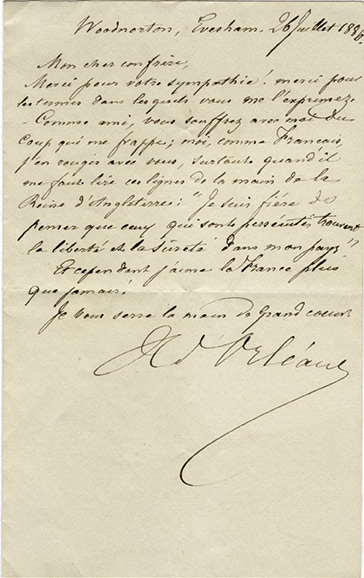 Woodnorton, Evesham. 26 Juillet 1886
Mon cher confrère,
Merci pour votre sympathie! merci pour
les termes dans lesquels vous me l'exprimez.
- Comme ami, vous souffrez avec moi du
coup qui me frappe; moi, comme Français,
j'en rougis avec vous, surtout quand il
me faut lire ces lignes de la main de la
Reine d'Angleterre: "Je suis fière de
penser que ceux qui sont persécutés trouvent
la liberté et la sûreté dans mon pays"
Et cependant j'aime la France plus
que jamais!
Je vous serre la main de grand coeur.
H d'Orléans